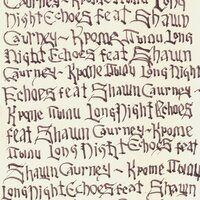 Long
Night Echoes feat Shawn
Courney ~ Krome Long
Night Echoes feat Shawn
Courney ~ Krome Long Night
Echoes feat Shawn Courney ~
Krome Long Night Echoes
feat Shawn Courney ~ Krome
Long Night Echoes feat
Shawn Courney ~ Krome
Long Night Echoes feat Shawn